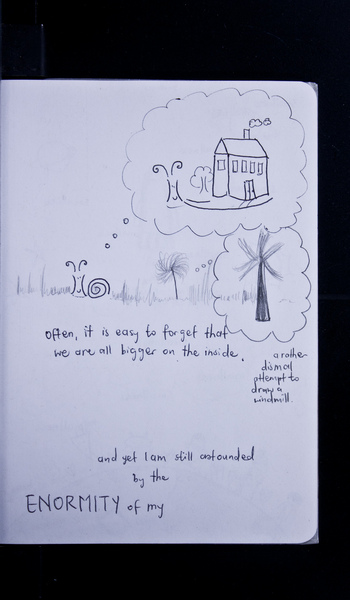 often, it is easy to forget that
we are all bigger on the inside.
a rather
dismal
attempt to
draw a
windmill.
and yet I am still astounded
by the
ENORMITY of my